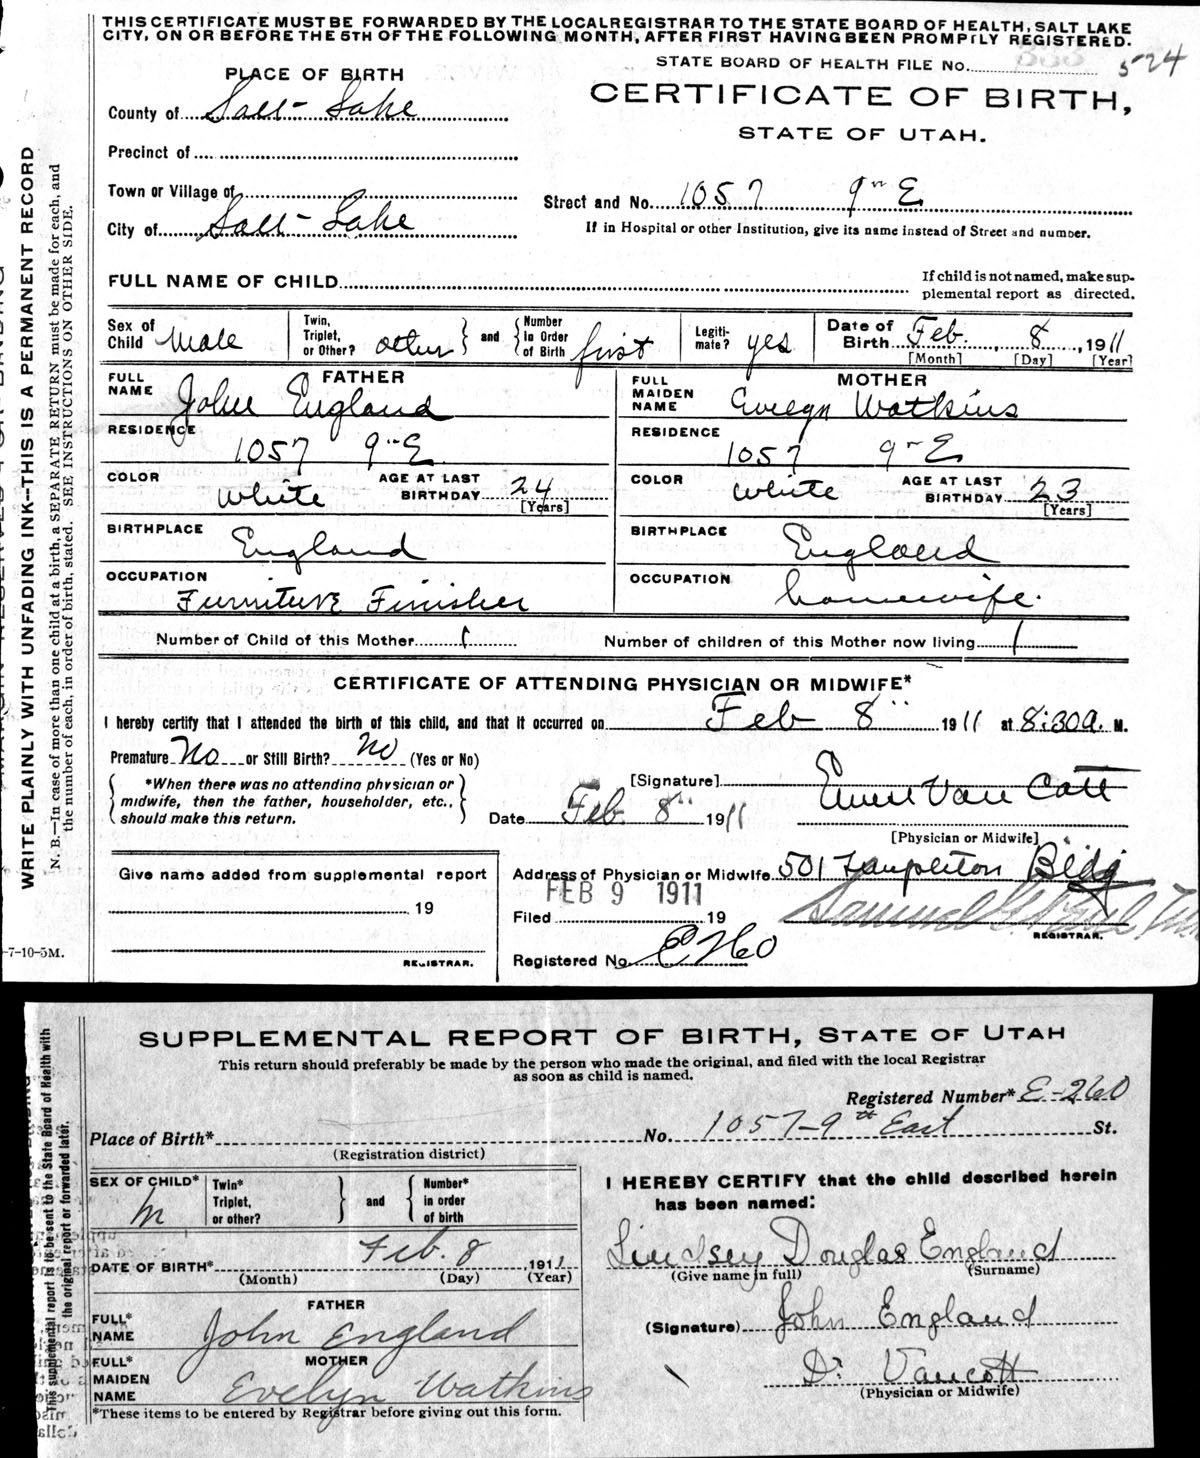 THIS CERTIFICATE MUST BE FORWARDED BY THE LOCAL REGISTRAR TO THE STATE BOARD OF HEALTH, SALT LAKE
CITY, ON OR BEFORE THE 5TH OF THE FOLLOWING MONTH, AFTER FIRST HAVING BEEN PROMPTLY REGISTERED.
STATE BOARD OF HEALTH FILE NO. 333 524
PLACE OF BIRTH
CERTIFICATE OF BIRTH,
STATE OF UTAH.
County of Salt Lake
Precinct of
Town or Village of
Street and No. 1057 9th E
City of Salt Lake
If in Hospital or other Institution, give its name instead of Street and number.
FULL NAME OF CHILD
If child is not named, make sup-
plemental report as directed.
Sex of Child Male
Twin, Triplet, or Other? other and Number in Order of Birth first
Legiti-mate? yes
Date of Birth Feb. 8, 1911
[Month] [Day] [Year]
FATHER
FULL NAME John England
MOTHER
FULL MAIDEN NAME Evelyn Watkins
RESIDENCE 1057 9th E
RESIDENCE 1057 9th E
COLOR White AGE AT LAST BIRTHDAY 24 [Years]
COLOR White AGE AT LAST BIRTHDAY 23 [Years]
BIRTHPLACE England
BIRTHPLACE England
OCCUPATION Furniture Finisher
OCCUPATION housewife.
Number of Child of this Mother 1
Number of children of this Mother now living 1
CERTIFICATE OF ATTENDING PHYSICIAN OR MIDWIFE*
I hereby certify that I attended the birth of this child, and that it occurred on Feb 8" 1911 at 8:30 a. M.
Premature No or Still Birth? No (Yes or No)
*When there was no attending physician or
midwife, then the father, householder, etc.,
should make this return.
[Signature] Van Cott
Date Feb. 8" 1911
[Physician or Midwife]
Give name added from supplemental report
19
REGISTRAR.
Address of Physician or Midwife 501 Templeton Bldg
FEB 9 1911
Filed 19
REGISTRAR.
Registered No. E 260
-7-10-5M.
WRITE PLAINLY WITH UNFADING INK--THIS IS A PERMANENT RECORD
N. B.—In case of more than one child at a birth, a SEPARATE RETURN must be made for each, and
the number of each, in order of birth, stated. SEE INSTRUCTIONS ON OTHER SIDE.
SUPPLEMENTAL REPORT OF BIRTH, STATE OF UTAH
This return should preferably be made by the person who made the original, and filed with the local Registrar
as soon as child is named.
Registered Number* E-260
Place of Birth* No. 1057-9th East St.
(Registration district)
SEX OF CHILD* M
Twin* Triplet, or other? and Number* in order of birth
I HEREBY CERTIFY that the child described herein
has been named:
DATE OF BIRTH* Feb. 8 1911
(Month) (Day) (Year)
Lindsey Douglas England
(Give name in full) (Surname)
FATHER
FULL* NAME John England
(Signature) John England
MOTHER
FULL* MAIDEN NAME Evelyn Watkins
Dr Vancott
(Physician or Midwife)
*These items to be entered by Registrar before giving out this form.
This supplemental report is to be sent to the State Board of Health with
the original report or forwarded later.